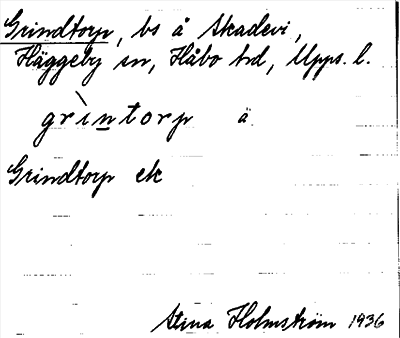 Grindtorp, bs å Skadevi,
Häggeby sn, Håbo hd, Upps. l.
grìntorp å
Grindtorp ek
Stina Holmström 1936